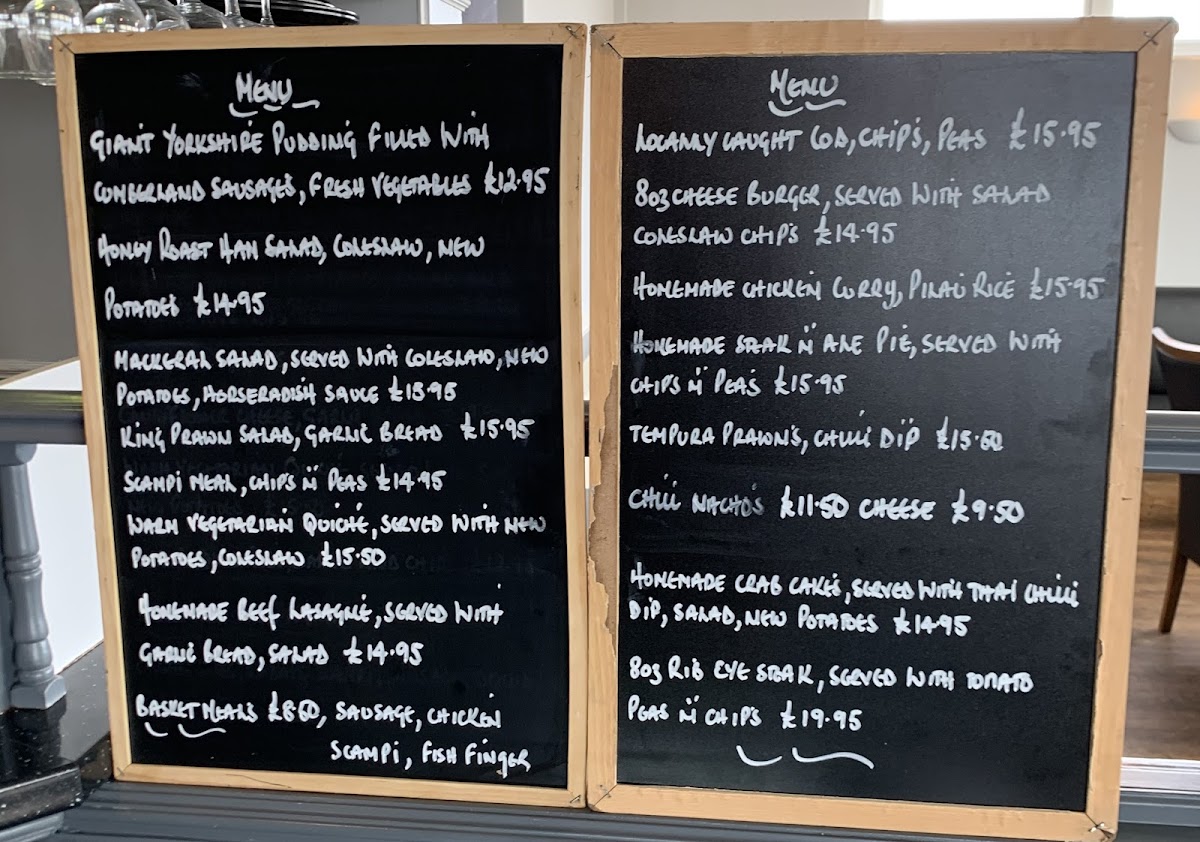 MENU
GIANT YORKSHIRE PUDDING FILLED WITH
CUMBERLAND SAUSAGES, FRESH VEGETABLES £12.95
HONEY ROAST HAM SALAD, COLESLAW, NEW
POTATOES £14.95
MACKERAL SALAD, SERVED WITH COLESLAW, NEW
POTATOES, HORSERADISH SAUCE £15.95
KING PRAWN SALAD, GARLIC BREAD £15.95
SCAMPI MEAL, CHIPS 'N' PEAS £14.95
WARM VEGETARIAN QUICHÉ, SERVED WITH NEW
POTATOES, COLESLAW £15.50
HOMEMADE BEEF LASAGNÉ, SERVED WITH
GARLIC BREAD, SALAD £14.95
BASKET MEALS £8.60, SAUSAGE, CHICKEN
SCAMPI, FISH FINGER
MENU
LOCALLY CAUGHT COD, CHIP'S, PEAS £15.95
8oz CHEESE BURGER, SERVED WITH SALAD
COLESLAW CHIP'S £14.95
HOMEMADE CHICKEN CURRY, PILAU RICE £15.95
HOMEMADE STEAK 'N' ALE PIE, SERVED WITH
CHIP'S 'N' PEA'S £15.95
TEMPURA PRAWN'S, CHILLI DIP £15.60
CHILLI NACHO'S £11.50 CHEESE £9.50
HOMEMADE CRAB CAKE'S, SERVED WITH THAI CHILLI
DIP, SALAD, NEW POTATOES £14.95
8oz RIB EYE STEAK, SERVED WITH TOMATO
PEAS 'N' CHIP'S £19.95